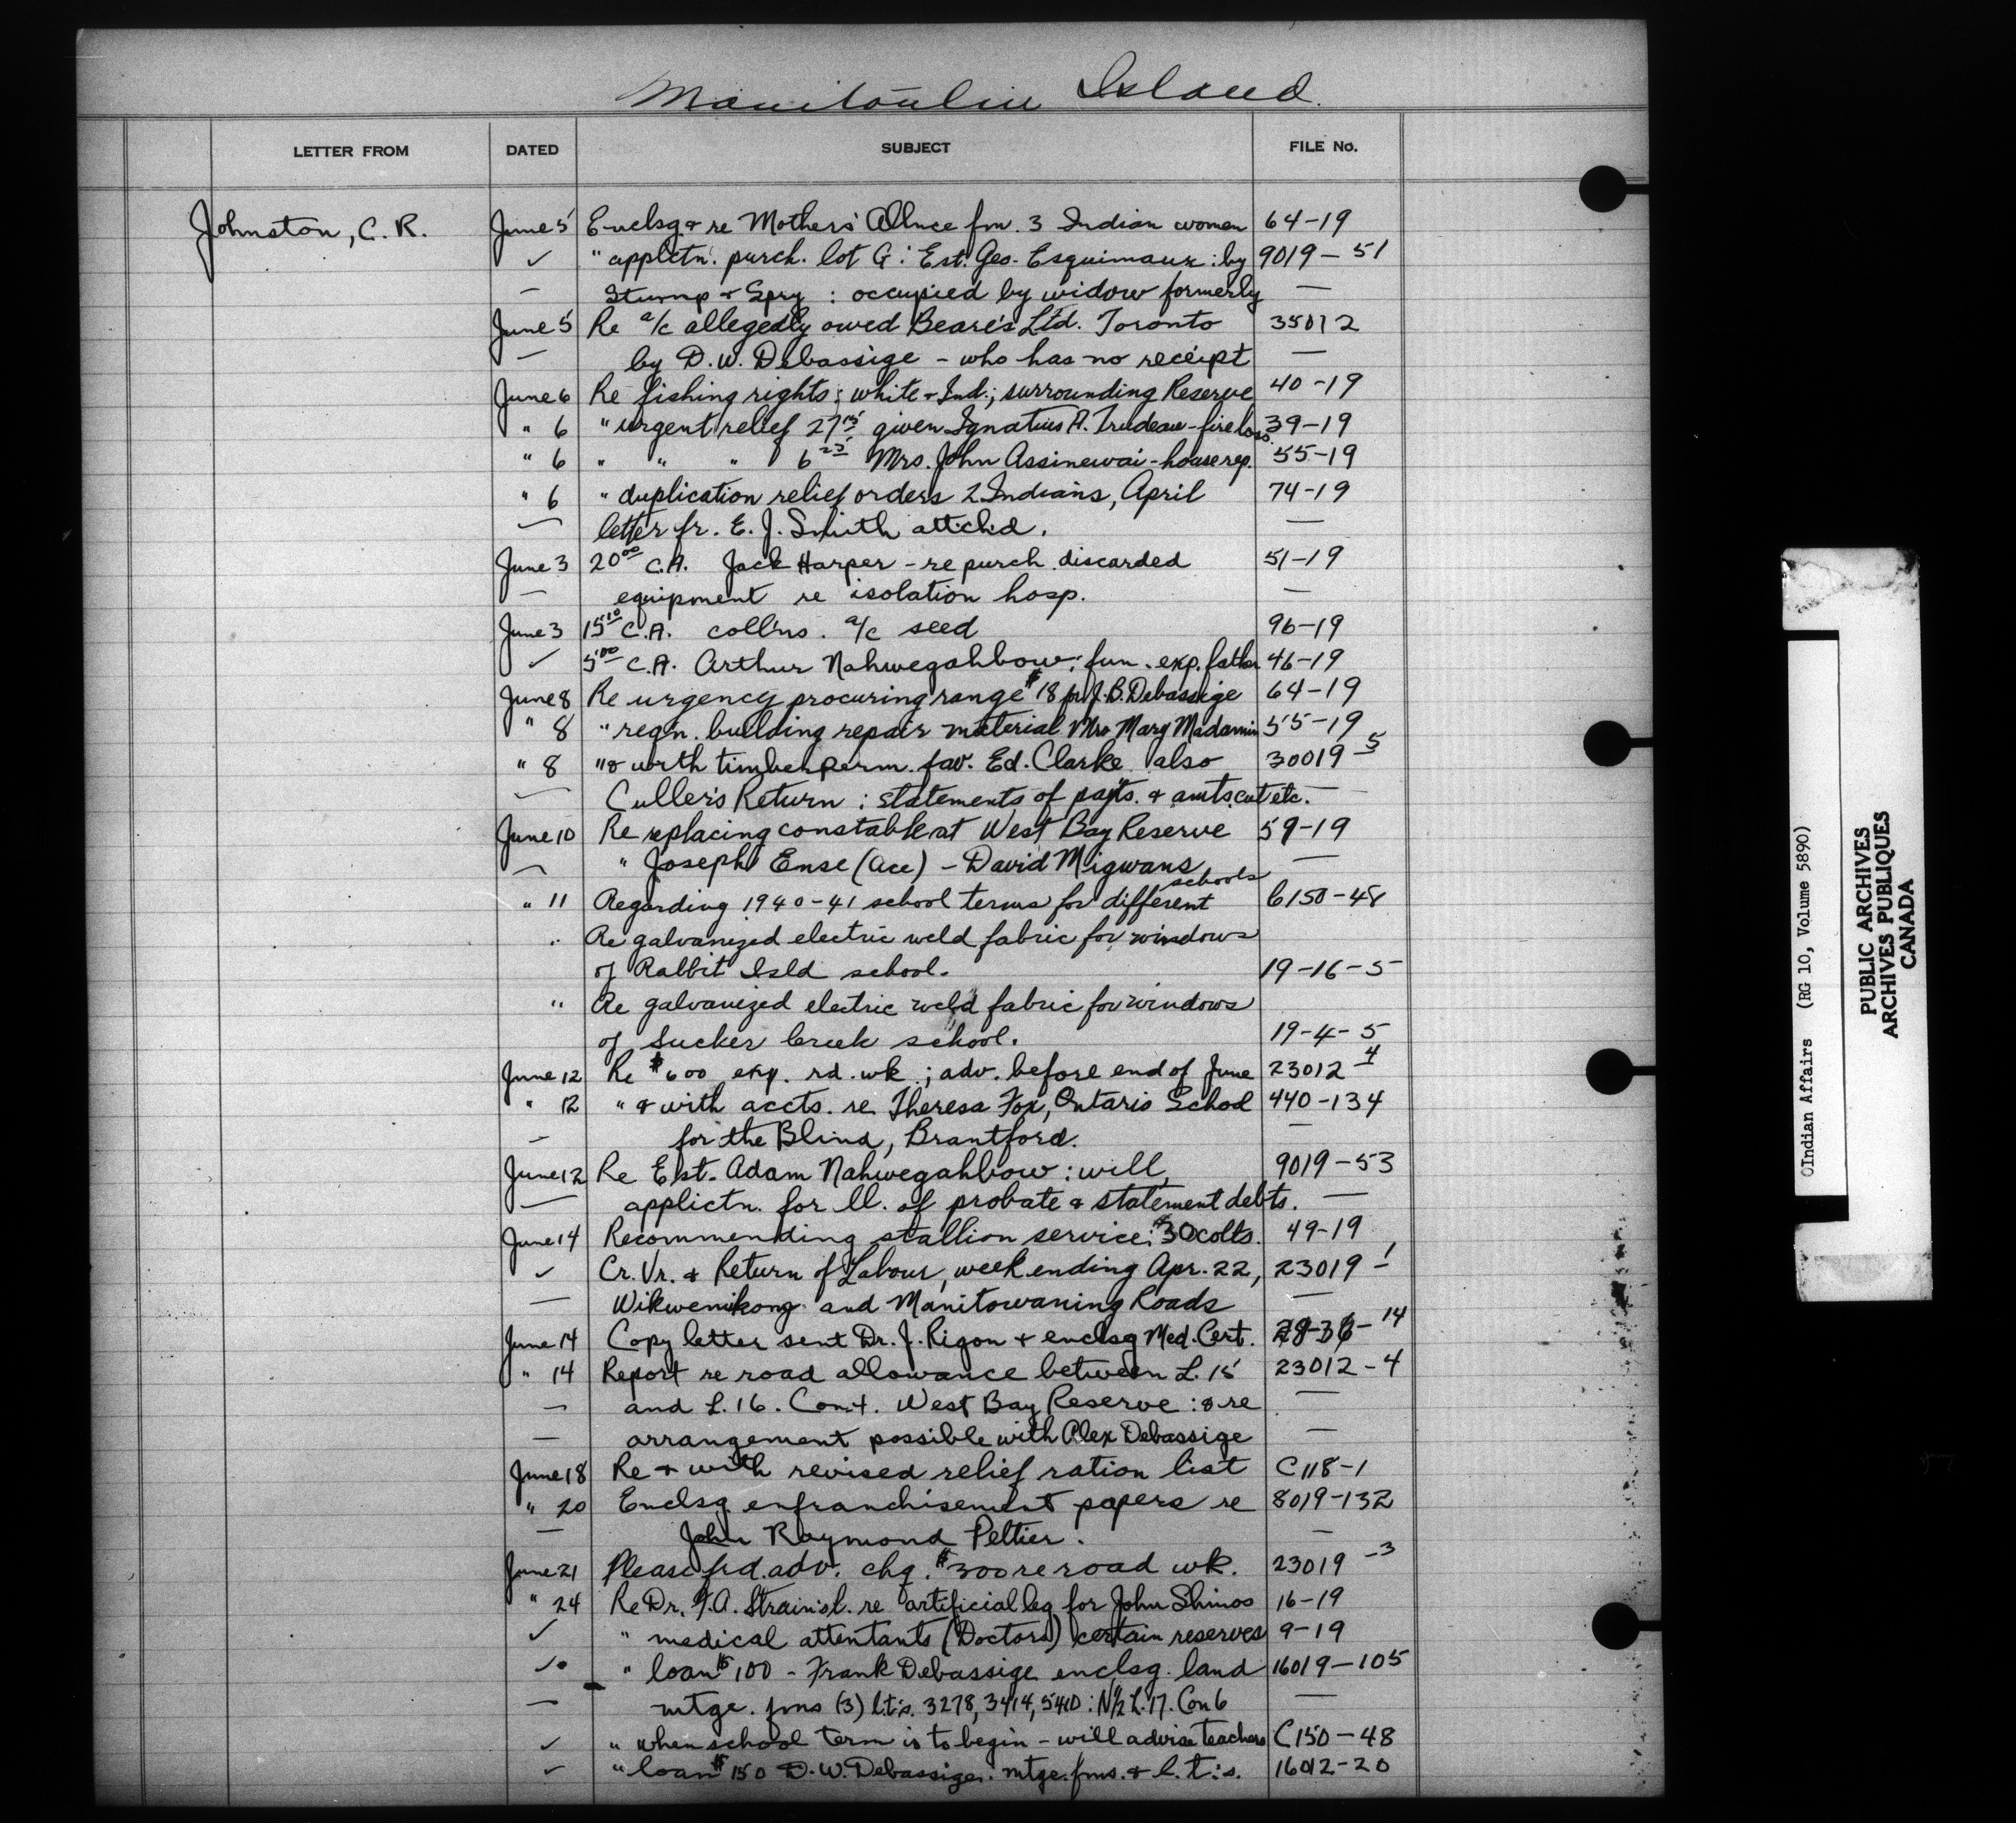 Manitoulin Island.
LETTER FROM DATED SUBJECT FILE No.
Johnston, C. R. June 5 Enclsg & re Mothers' Allnce fm. 3 Indian women 64-19
✓ " applctn. purch. lot G : Est. Geo. Esquimaux : by 9019-51
— Stump & Spry : occupied by widow formerly —
June 5 Re a/c allegedly owed Beare's Ltd. Toronto 35012
— by D. W. Debassige - who has no receipt —
June 6 Re fishing rights ; white & Ind. ; surrounding Reserve 40-19
" 6 " urgent relief 27 given Ignatius A. Trudeau - fire loss. 39-19
" 6 " " " 6 25 Mrs. John Assinewai - house rep. 55-19
" 6 " duplication relief orders 2 Indians, April 74-19
— letter fr. E. J. Smith attchd. —
June 3 20 00 C.A. Jack Harper - re purch. discarded 51-19
— equipment re isolation hosp. —
June 3 15 10 C.A. coll'ns. a/c seed 96-19
✓ 5 00 C.A. Arthur Nahwegahbow ; fun. exp. father 46-19
June 8 Re urgency procuring range $18 for J. B. Debassige 64-19
" 8 " reqn. building repair material Mrs Mary Madamin 55-19
" 8 " & with timber perm. fav. Ed. Clarke also 30019-5
— Culler's Return : statements of payts. & amts. cut etc. —
June 10 Re replacing constable at West Bay Reserve 59-19
— " Joseph Ense (Ace) - David Migwans —
" 11 Regarding 1940-41 school terms for different schools 6150-48
" Re galvanized electric weld fabric for windows
of Rabbit Isld school. 19-16-5
" Re galvanized electric weld fabric for windows
of Sucker Creek school. 19-4-5
June 12 Re $600 exp. rd. wk. ; adv. before end of June 23012-4
" 12 " & with accts. re Theresa Fox, Ontario School 440-134
— for the Blind, Brantford. —
June 12 Re Est. Adam Nahwegahbow : will, 9019-53
— applictn. for ll. of probate & statement debts. —
June 14 Recommending stallion service: $30 colts. 49-19
✓ Cr. Vr. & Return of Labour, week ending Apr. 22, 23019-1
— Wikwemikong and Manitowaning Roads —
June 14 Copy letter sent Dr. J. Rigon & enclsg Med. Cert. -14
" 14 Report re road allowance between L. 15 23012-4
— and L. 16. Con 4. West Bay Reserve : & re —
— arrangement possible with Alex Debassige —
June 18 Re & with revised relief ration list C 118-1
" 20 Enclsg enfranchisement papers re 8019-132
— John Raymond Peltier. —
June 21 Please fwd. adv. chq. $300 re road wk. 23019-3
" 24 Re Dr. F. A. Strain's l. re artificial leg for John Shinos 16-19
✓ " medical attentants (Doctors) certain reserves 9-19
✓ " loan $100 - Frank Debassige enclsg. land 16019-105
— mtge. fms (3) l.t.'s. 3278, 3414, 5410 : N½ L. 17. Con 6 —
✓ " when school term is to begin - will advise teachers C150-48
✓ " loan $150 D. W. Debassige. mtge. fms. & l. t.'s. 16012-20
©Indian Affairs (RG 10, Volume 5890)
PUBLIC ARCHIVES
ARCHIVES PUBLIQUES
CANADA